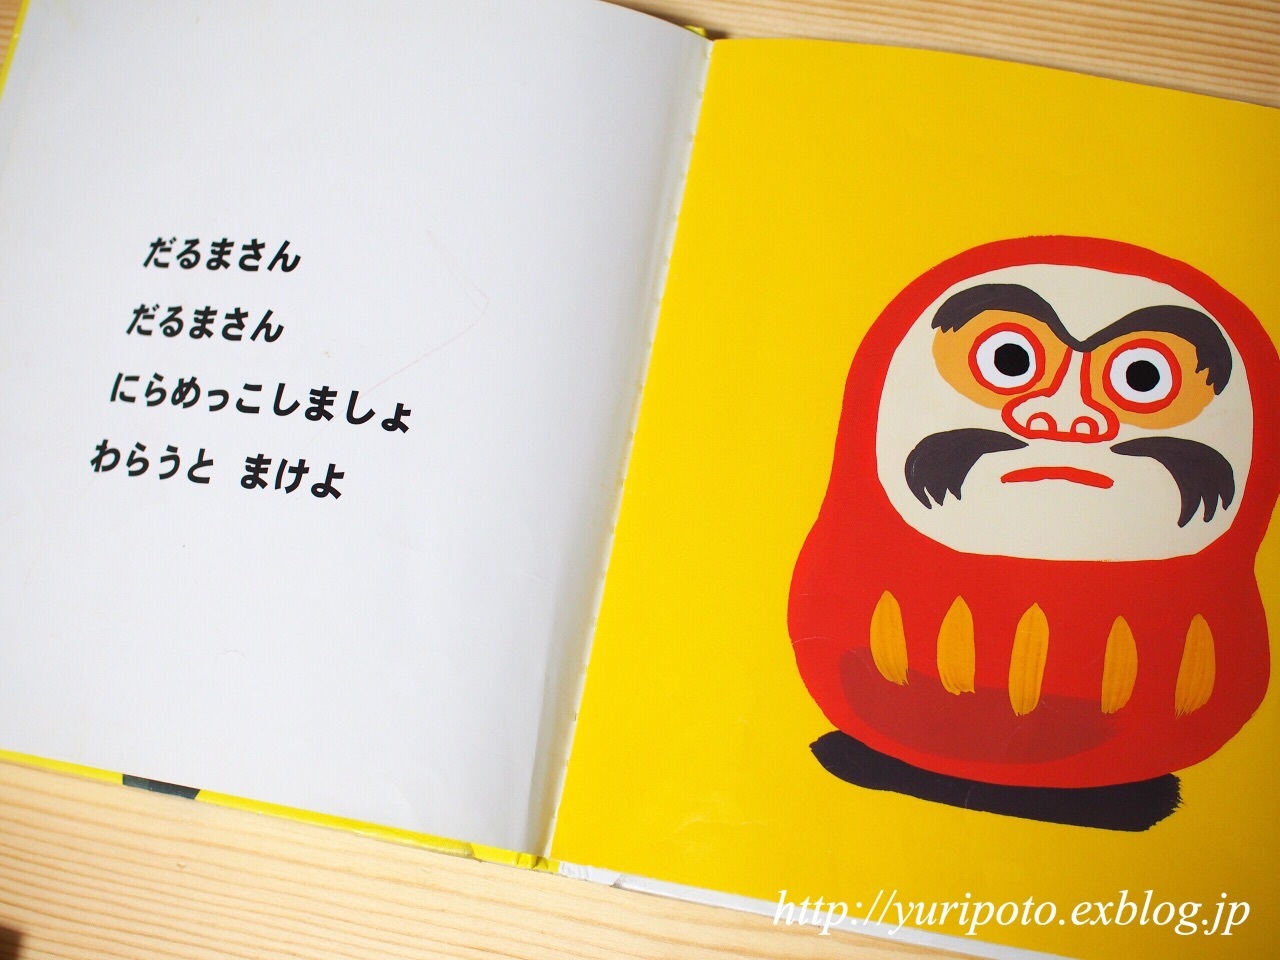 だるまさん
だるまさん
にらめっこしましょ
わらうと まけよ
http://yuripoto.exblog.jp